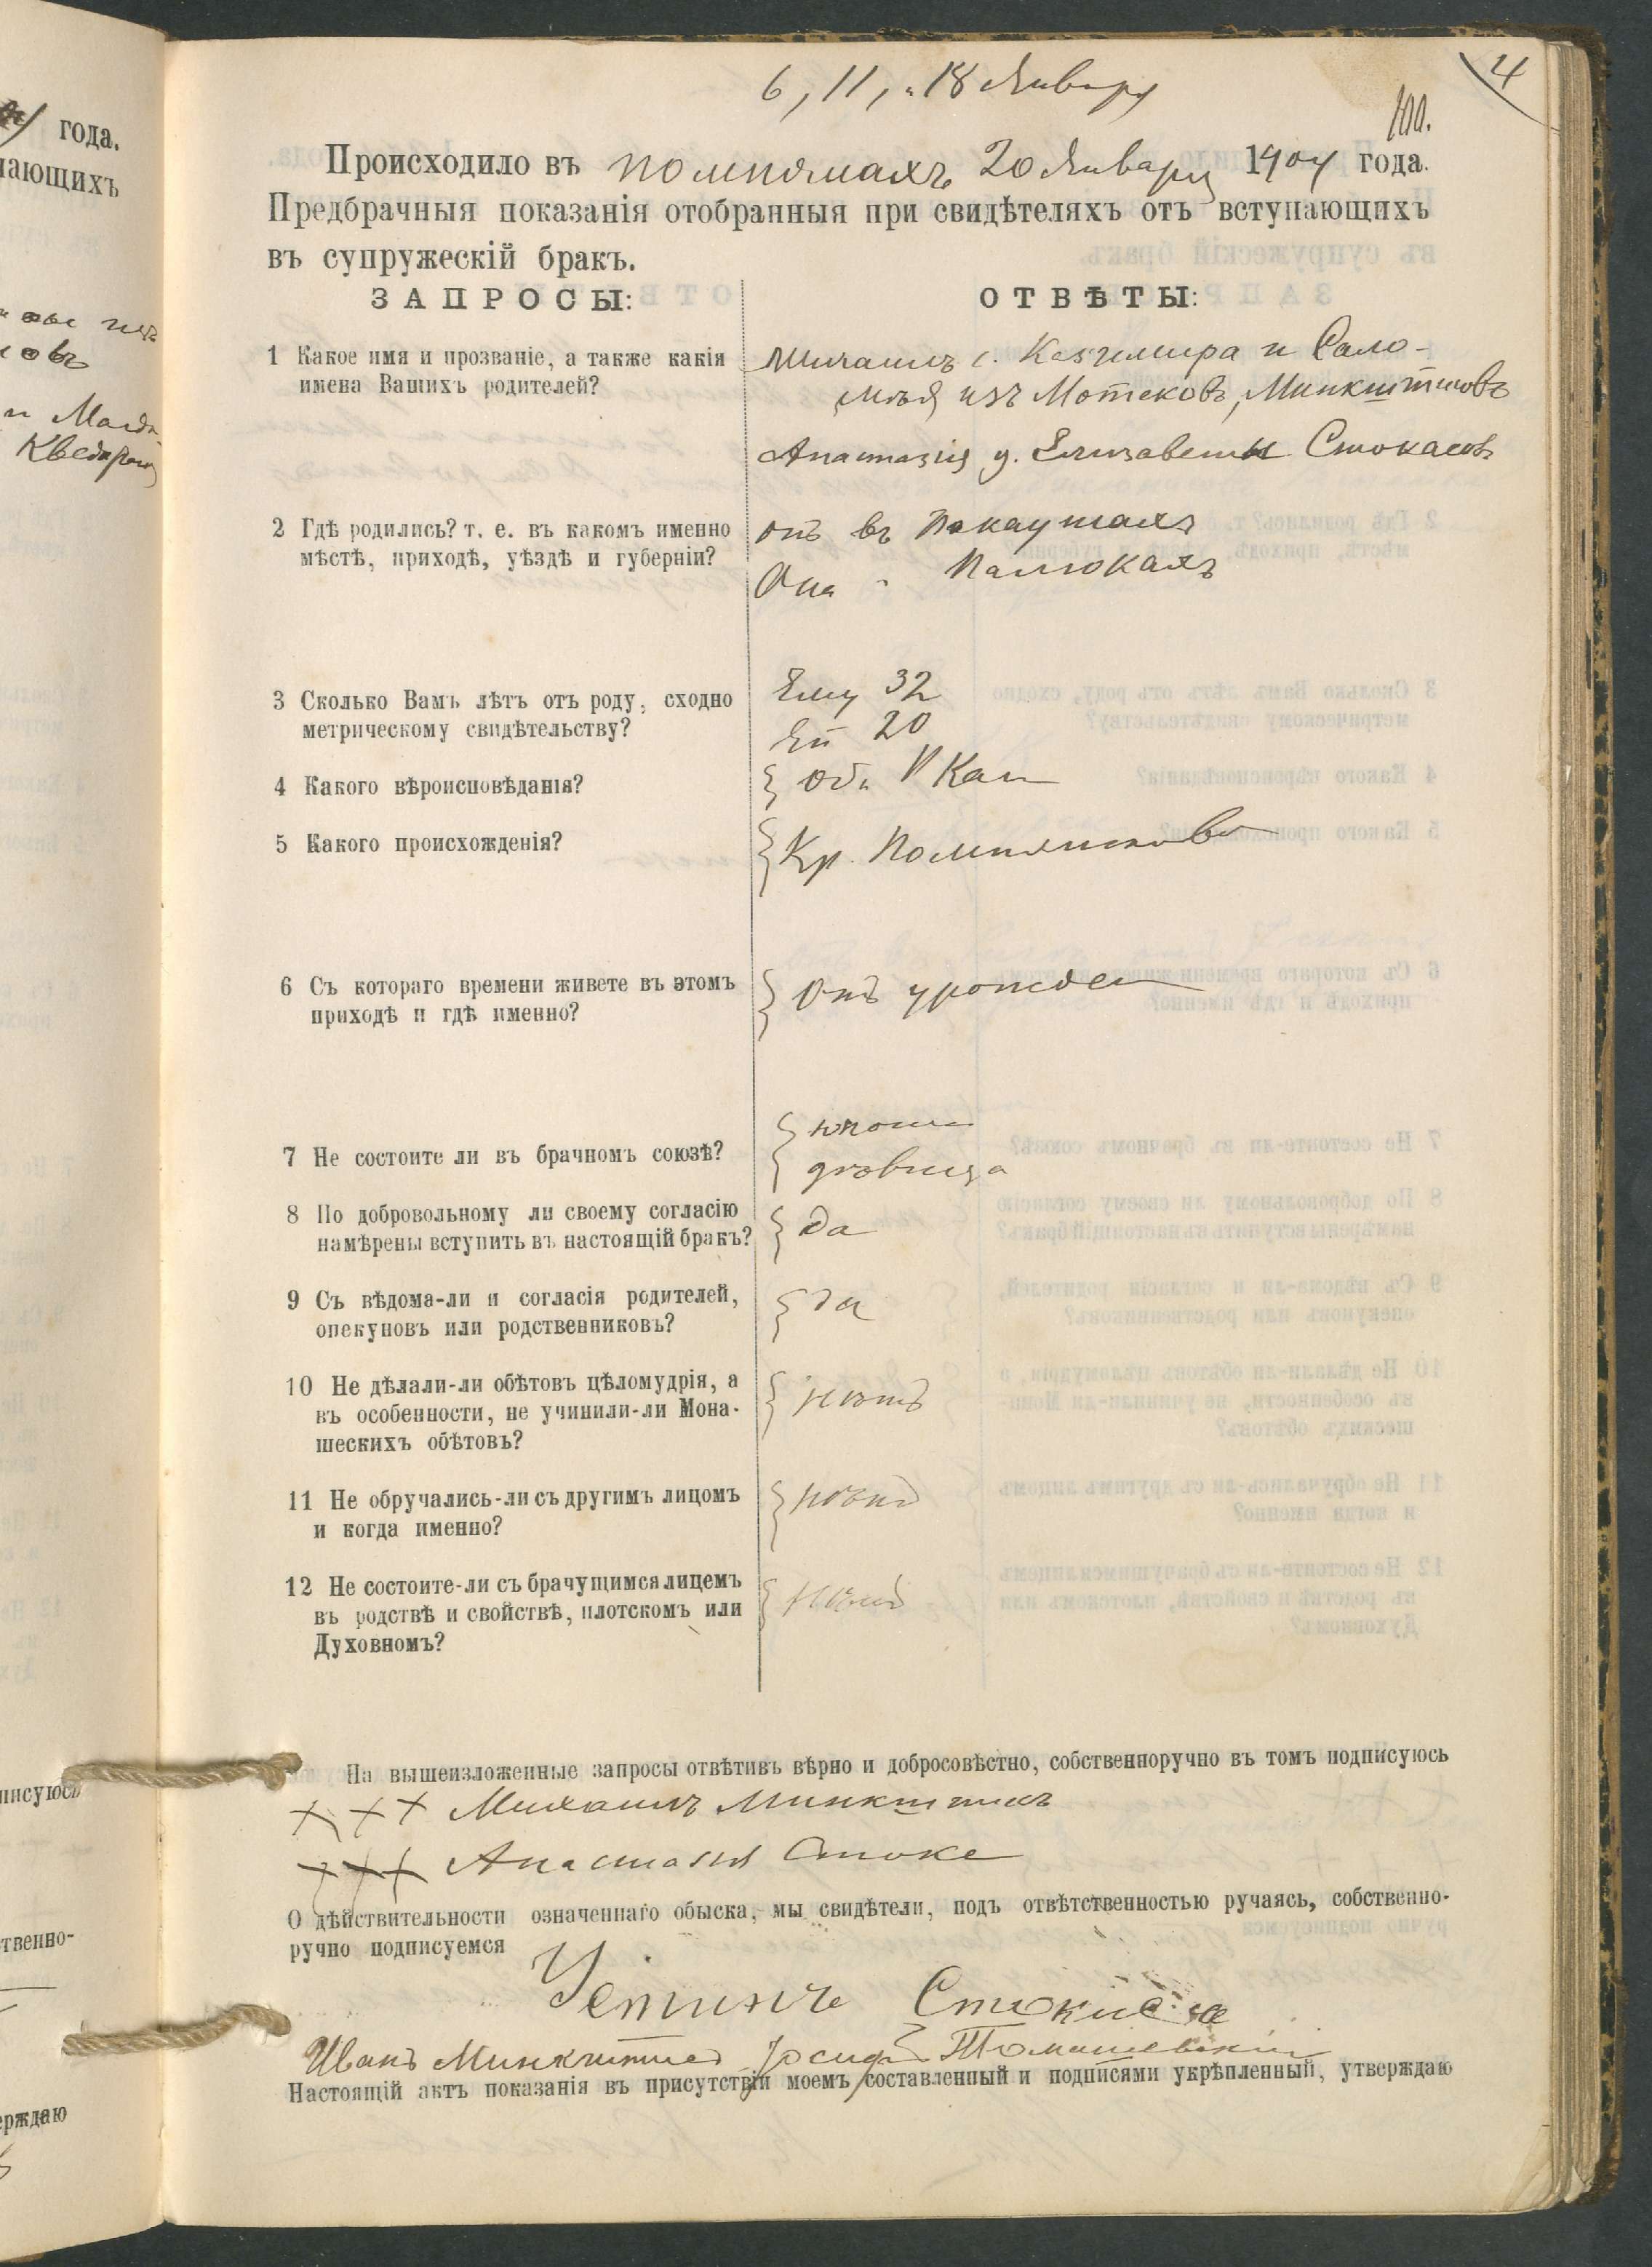 4
6, 11, и 18 Января
100.
Происходило въ Помпянахъ 20 Января 1904 года.
Предбрачныя показанія отобранныя при свидѣтеляхъ отъ вступающихъ
въ супружескій бракъ.
ЗАПРОСЫ:
ОТВѢТЫ:
1 Какое имя и прозваніе, а также какія
имена Вашихъ родителей?
Михаилъ с. Казимира и Сало-
мъя изъ Мотековъ, Минкштимовъ
Анастазія д. Елизаветы Стокасовъ
2 Гдѣ родились? т. е. въ какомъ именно
мѣстѣ, приходѣ, уѣздѣ и губерніи?
Онъ въ
Она
3 Сколько Вамъ лѣтъ отъ роду, сходно
метрическому свидѣтельству?
Ему 32
Ей 20
4 Какого вѣроисповѣданія?
Кат
5 Какого происхожденія?
Кр. Помпянской
6 Съ котораго времени живете въ этомъ
приходѣ и гдѣ именно?
Отъ урожден
7 Не состоите ли въ брачномъ союзѣ?
юноша
дѣвица
8 По добровольному ли своему согласію
намѣрены вступить въ настоящій бракъ?
да
9 Съ вѣдома-ли и согласія родителей,
опекуновъ или родственниковъ?
да
10 Не дѣлали-ли обѣтовъ цѣломудрія, а
въ особенности, не учинили-ли Мона-
шескихъ обѣтовъ?
нѣтъ
11 Не обручались-ли съ другимъ лицомъ
и когда именно?
нѣтъ
12 Не состоите-ли съ брачущимся лицемъ
въ родствѣ и свойствѣ, плотскомъ или
Духовномъ?
нѣтъ
На вышеизложенные запросы отвѣтивъ вѣрно и добросовѣстно, собственноручно въ томъ подписуюсь
+ + + Михаилъ Минкштимъ
+ + + Анастазія Стоке
О дѣйствительности означеннаго обыска, мы свидѣтели, подъ отвѣтственностью ручаясь, собственно-
ручно подписуемся
Устинъ
Иванъ Минкштимъ Іосифъ Томашевскій
Настоящій актъ показанія въ присутствіи моемъ составленный и подписями укрѣпленный, утверждаю